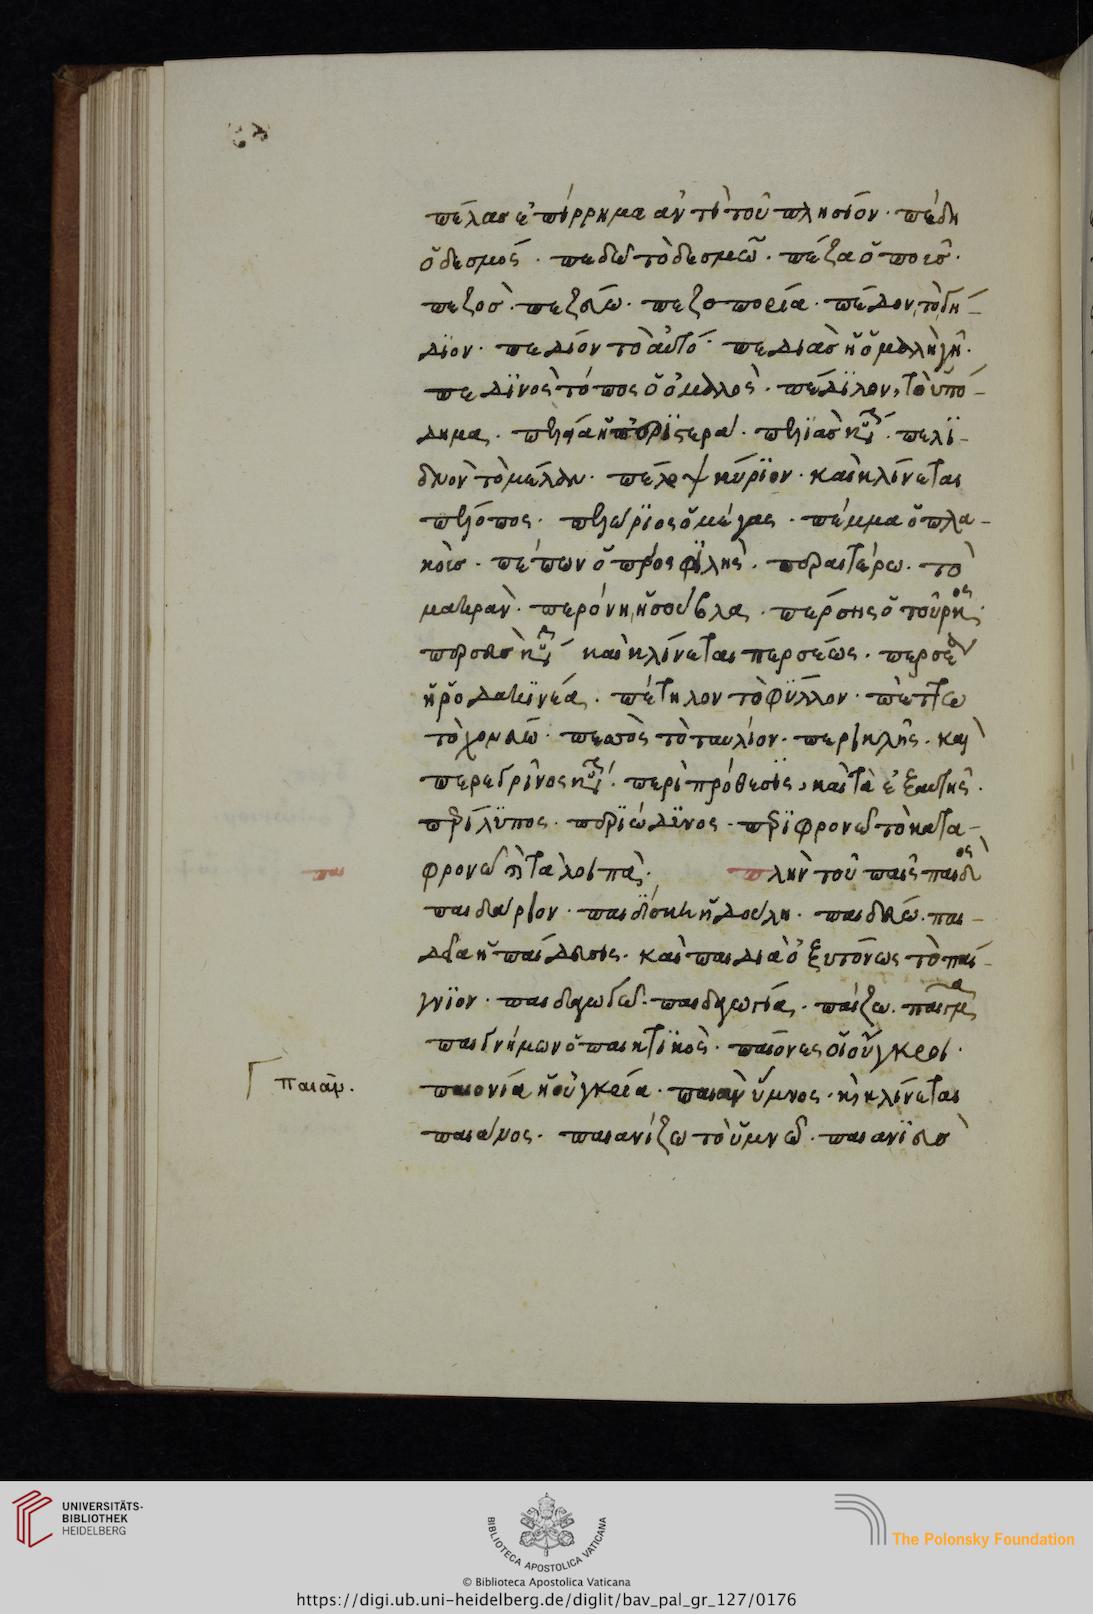 πέλας ἐπίρρημα ἀντὶ τοῦ πλησίον· πέδη
ὁ δεσμός· πεδῶ τὸ δεσμεῶ· πέζα ὁ ποῦς·
πεζὸς· πεζεύω· πεζοπορία· πέδον, τὸ γή-
διον· πεδίον τὸ αὐτό· πεδιὰς ἡ ὁμαλὴ γῆ·
πεδινὸς τόπος ὁ ὁμαλὸς· πέδιλον, τὸ ὑπό-
δημα· πέλεια ἡ περιστερά· πελιὰς
δνὸν τὸ μέλαν· κύριον· καὶ κλίνεται
πέλοπος· πελώριος ὁ μέγας· πέμμα ὁ πλα-
κοῦς· πέπων ὁ προσφιλὴς· περαιτέρω· τὸ
μακρὰν· περόνη, ἡ σούβλα· πέρσης ὁ τοῦρκος·
περσεὺς καὶ κλίνεται περσέως· περσέα
ἡ ῥοδακινέα· πέταλον τὸ φύλλον· πέττω
τὸ χονεύω· πεσσὸς τὸ ταυλίον· περικλῆς· καὶ
περὶ πρόθεσις, καὶ τὰ ἐξ αὐτῆς·
περίλυπος· περιώδυνος· περιφρονῶ τὸ κατα-
φρονῶ καὶ τὰ λοιπὰ· πλὴν τοῦ παῖς παιδὸς
παι
παιδάριον· παιδίσκη ἡ δούλη· παιδεύω· παι-
δεία ἡ παίδευσις· καὶ παιδιὰ ὀξυτόνως τὸ παί-
γνιον· παιδαγωγῶ· παιδαγωγία· παίζω· παῖγμα
παιγνήμων ὁ παικτικὸς· παίονες οἱ οὔγκροι·
παιονία ἡ οὐγκρία· παιὰν ὕμνος· καὶ κλίνεται
παιάν.
παιάνος· παιανίζω τὸ ὑμνῶ· παιανιεὺς
UNIVERSITÄTS-
BIBLIOTHEK
HEIDELBERG
BIBLIOTECA APOSTOLICA VATICANA
The Polonsky Foundation
© Biblioteca Apostolica Vaticana
https://digi.ub.uni-heidelberg.de/diglit/bav_pal_gr_127/0176